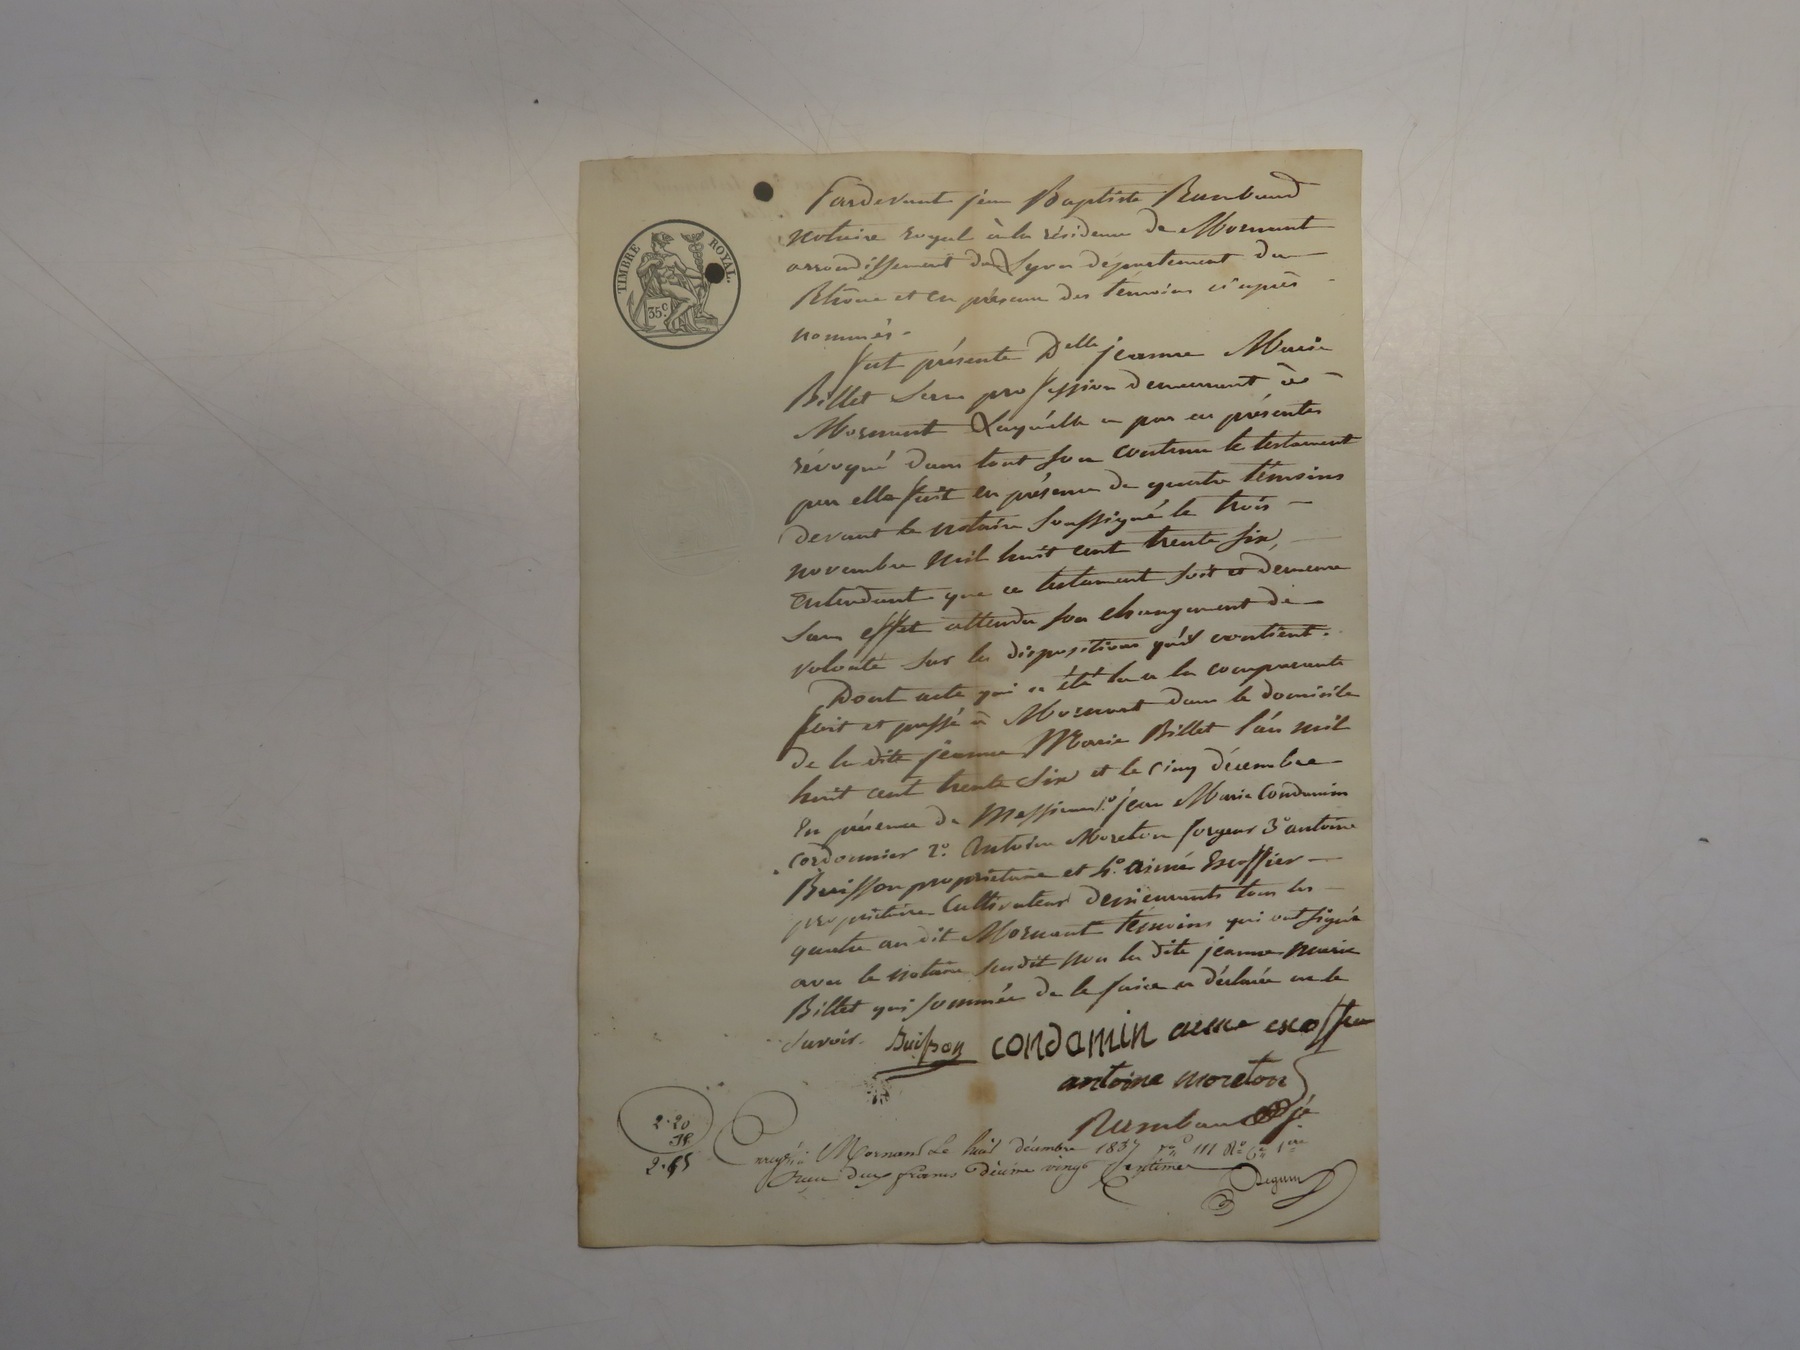 Pardevant jean Baptiste Rambaud
TIMBRE ROYAL.
35c.
notaire royal à la résidence de Mornant
arrondissement de Lyon département du
Rhône et en présence des témoins ci après
nommés.
fut présente Delle jeanne Marie
Billet sans profession demeurant à
Mornant Laquelle a par ces présentes
révoqué dans tout son contenu le testament
par elle fait en présence de quatre témoins
devant le notaire soussigné le trois
novembre mil huit cent trente six,
entendant que ce testament soit et demeure
sans effet attendu son changement de
volonté sur les dispositions qu'il contient.
Dont acte qui a été lu a la comparante
fait et passé à Mornant dans le domicile
de la dite jeanne Marie Billet l'an mil
huit cent trente six et le cinq décembre
En présence de Messieurs 1o jean Marie Condamin
cordonnier 2o. Antoine Moreton forgeur 3o antoine
Buisson propriétaire et 4o. aimé Escoffier
propriétaire Cultivateur demeurants tous les
quatre au dit Mornant témoins qui ont signé
avec le notaire susdit non la dite jeanne marie
Billet qui sommée de le faire a déclaré ne le
savoir.
Buisson condamin aimé escoffier
antoine moreton
Rambaud
2.20
2.
Mornant Le huit décembre 183 fo 111 Ro
Reçu deux francs Décime vingt Centimes